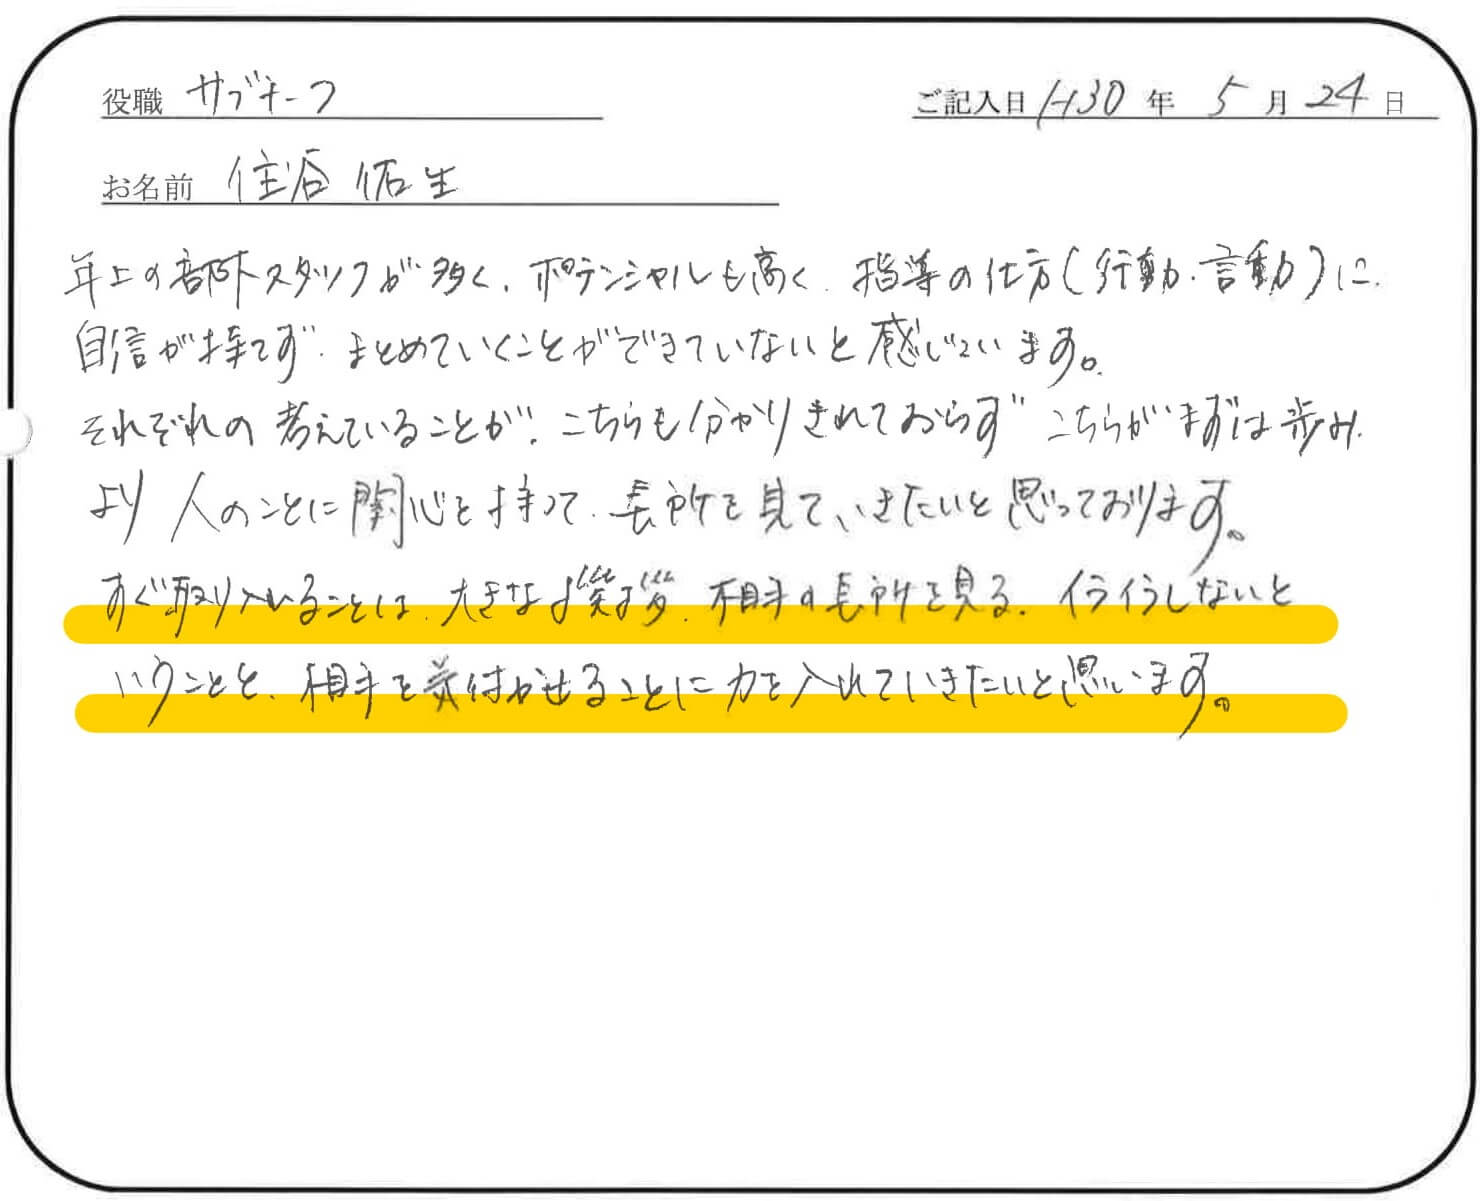 役職 サブチーフ
ご記入日 H30 年 5 月 24 日
お名前 住谷 佑生
年上の部下スタッフが多く、ポテンシャルも高く、指導の仕方(行動・言動)に、
自信が持てず、まとめていくことができていないと感じています。
それぞれの考えていることが、こちらも分かりきれておらず こちらがまずは歩み
より 人のことに関心を持って、長所を見ていきたいと思っております。
すぐ取り入れることは、大きな挨拶、相手の長所を見る、イライラしないと
いうことを、相手を気付かせることに力を入れていきたいと思います。